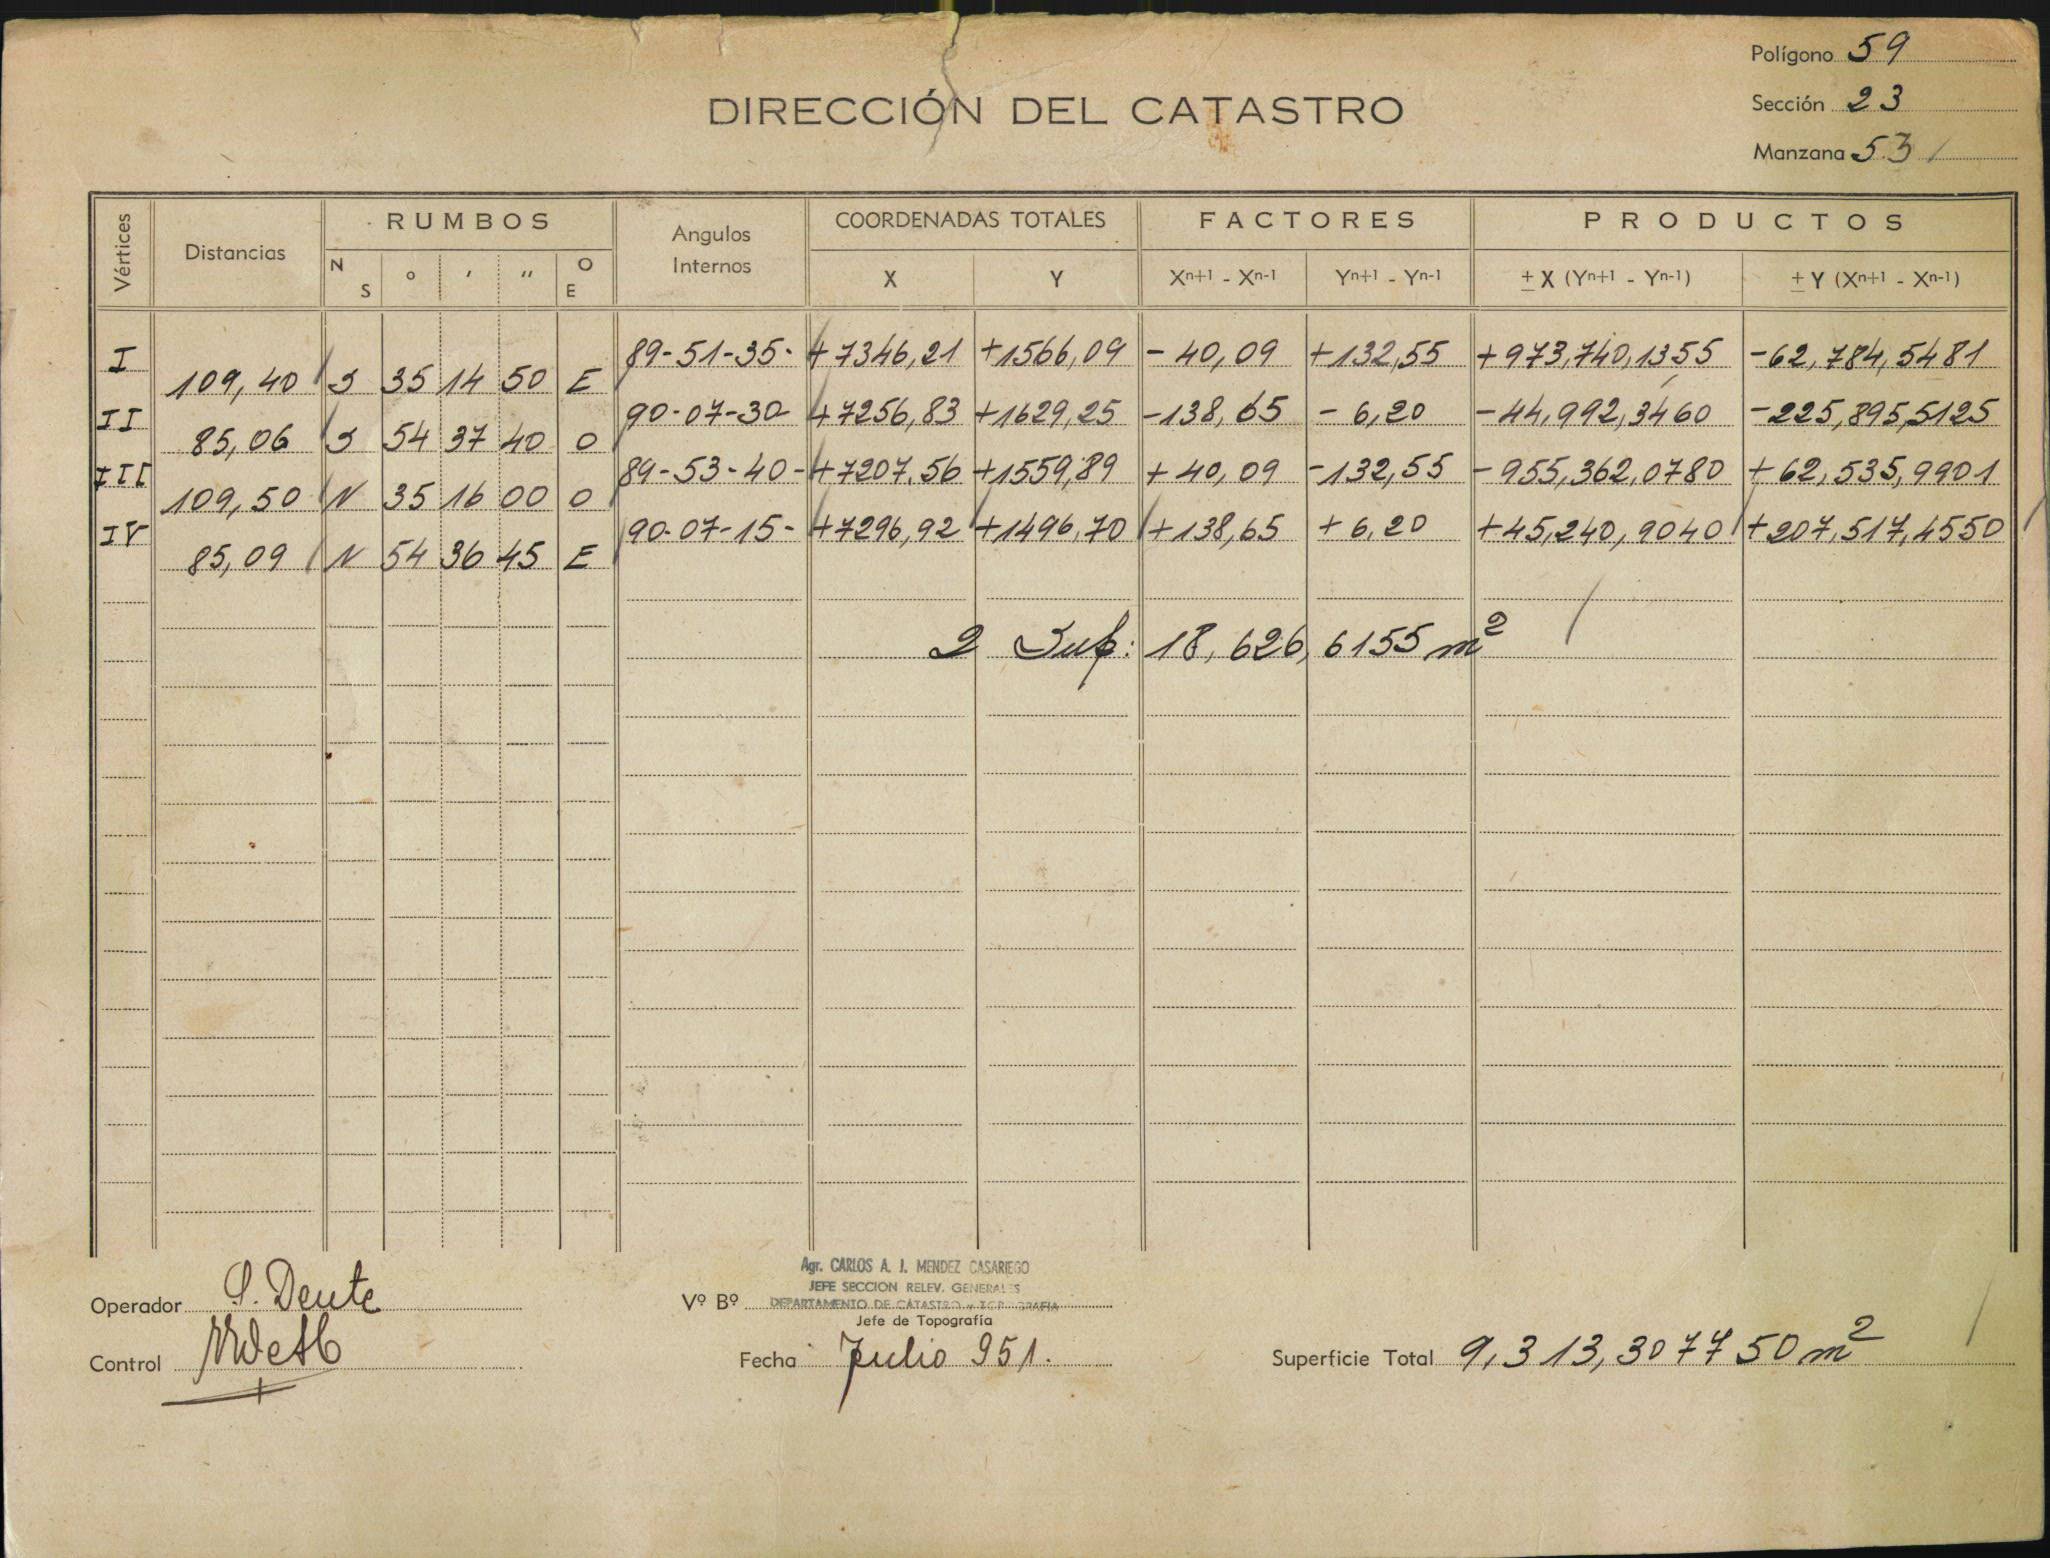 Polígono 59
DIRECCIÓN DEL CATASTRO
Sección 23
Manzana 53
Vértices Distancias RUMBOS Angulos Internos COORDENADAS TOTALES FACTORES PRODUCTOS
N S ° ' " O E X Y Xn+1 - Xn-1 Yn+1 - Yn-1 ± X (Yn+1 - Yn-1) ± Y (Xn+1 - Xn-1)
I 89-51-35- +7346,21 +1566,09 -40,09 +132,55 +973,740,1355 -62,784,5481
109,40 S 35 14 50 E
II 90-07-30- +7256,83 +1629,25 -138,65 -6,20 -44,992,3460 -225,895,5125
85,06 S 54 37 40 O
III 89-53-40- +7207,56 +1559,89 +40,09 -132,55 -955,362,0780 +62,535,9901
109,50 N 35 16 00 O
IV 90-07-15- +7296,92 +1496,70 +138,65 +6,20 +45,240,9040 +207,517,4550
85,09 N 54 36 45 E
2 Sup: 18,626,6155 m²
Agr. CARLOS A. J. MENDEZ CASARIEGO
JEFE SECCION RELEV. GENERALES
Operador S. Dente Vº Bº DEPARTAMENTO DE CATASTRO y TOPOGRAFIA
Jefe de Topografía
Control Fecha Julio 951. Superficie Total 9,313,307750 m²